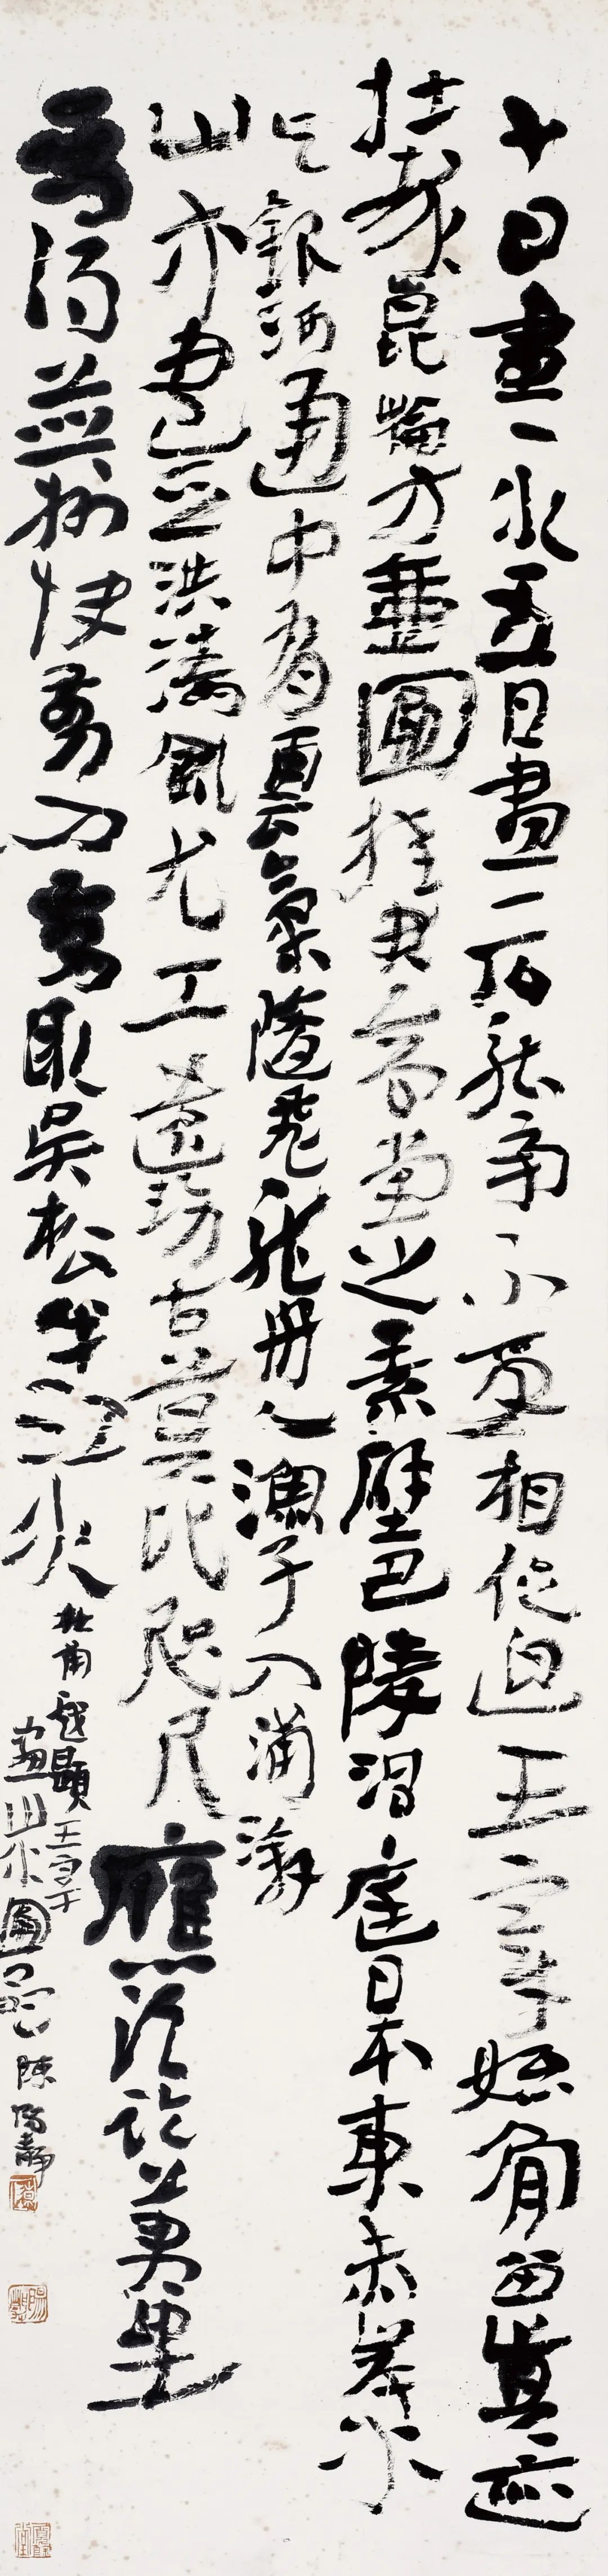 十日畫一水五日畫一石能事不受相促迫王宰始肯留真迹
壯哉崑崙方壺圖挂君高堂之素壁巴陵洞庭日本東赤岸水
与銀河通中有雲氣隨飛龍舟人漁子入浦漵
山木盡亞洪濤風尤工遠勢古莫比咫尺應須論萬里
焉得並州快剪刀剪取吳松半江水杜甫戲題王宰
畫山水圖歌陳陽靜